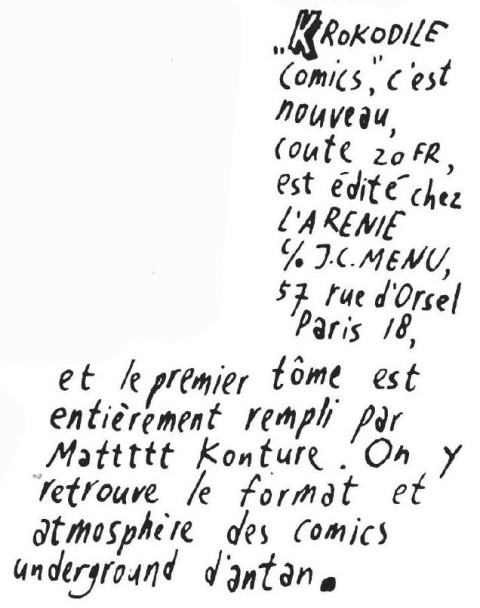 „KROKODILE
comics," c'est
nouveau,
coute 20 FR,
est édité chez
L'ARENIE
c/o J.C. MENU,
57 rue d'Orsel
Paris 18,
et le premier tôme est
entièrement rempli par
Mattttt Konture. On y
retrouve le format et
atmosphère des comics
underground d'antan.